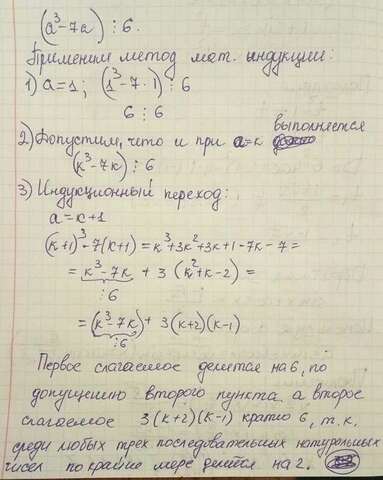 (a³-7a) ⋮ 6.
Применим метод мат. индукции:
1) a=1; (1³-7·1) ⋮ 6
6 ⋮ 6
2) Допустим, что и при a=k выполняется
(k³-7k) ⋮ 6
3) Индукционный переход:
a=k+1
(k+1)³-7(k+1)=k³+3k²+3k+1-7k-7=
= k³-7k + 3(k²+k-2) =
⋮6
= (k³-7k) + 3(k+2)(k-1)
⋮6
Первое слагаемое делится на 6, по
допущению второго пункта. а второе
слагаемое 3(k+2)(k-1) кратно 6, т.к.
среди любых трех последовательных натуральных
чисел по крайне мере делится на 2.